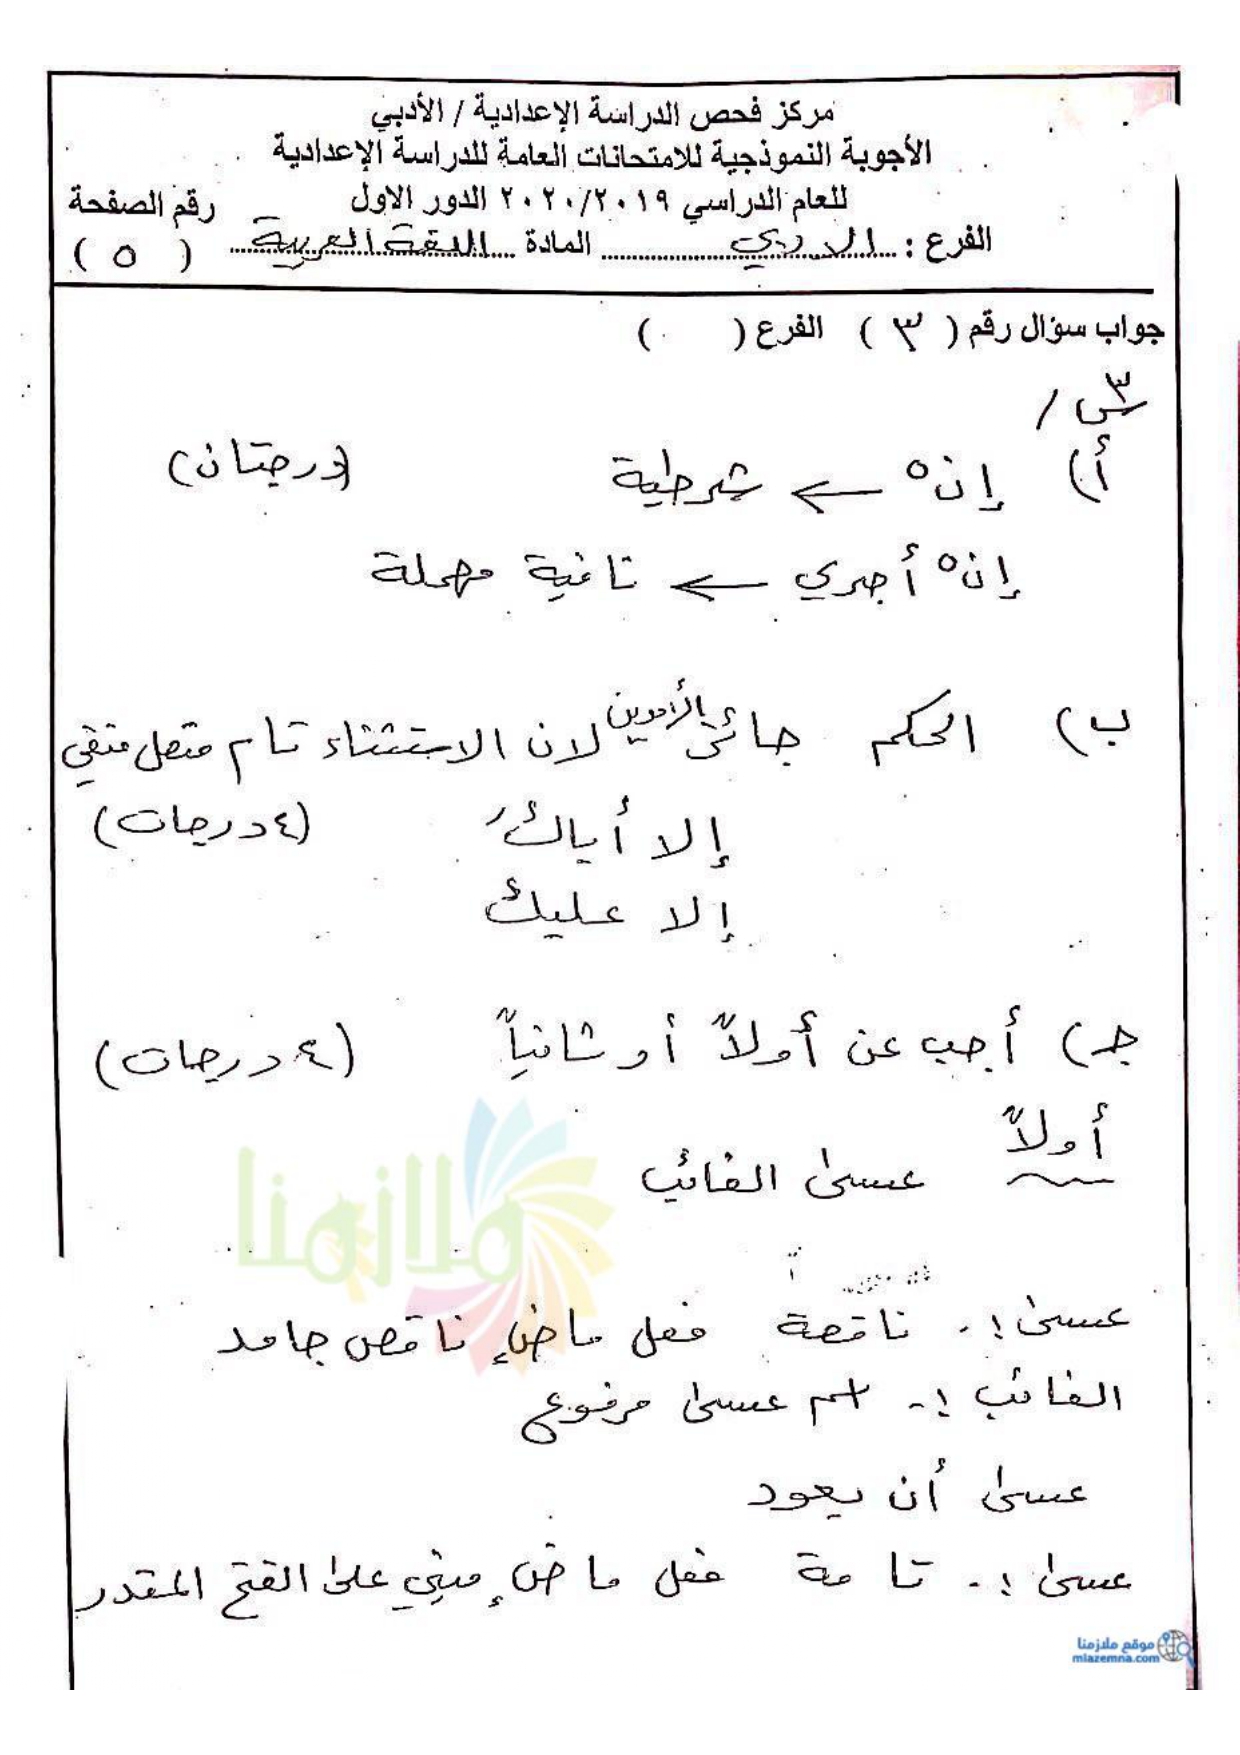 مركز فحص الدراسة الإعدادية / الأدبي
الأجوبة النموذجية للامتحانات العامة للدراسة الإعدادية
للعام الدراسي ٢٠٢٠/٢٠١٩ الدور الاول
رقم الصفحة
الفرع : الادبي المادة اللغة العربية
( ٥ )
جواب سؤال رقم ( ٣ ) الفرع ( )
س٣ /
أ) إنْ ← شرطية (درجتان)
إنْ أجري ← نافية مهملة
ب) الحكم جائز الأمرين لان الاستثناء تام متصل منفي
إلا أياك (٤ درجات)
إلا عليك
جـ) أجب عن أولاً أو ثانياً (٤ درجات)
أولاً عسى الغائب
عسى :- ناقصة فعل ماضٍ ناقص جامد
الغائب :- اسم عسى مرفوع
عسى أن يعود
عسى :- تامة فعل ماضٍ مبني على الفتح المقدر
ملازمنا
موقع ملازمنا
mlazemna.com